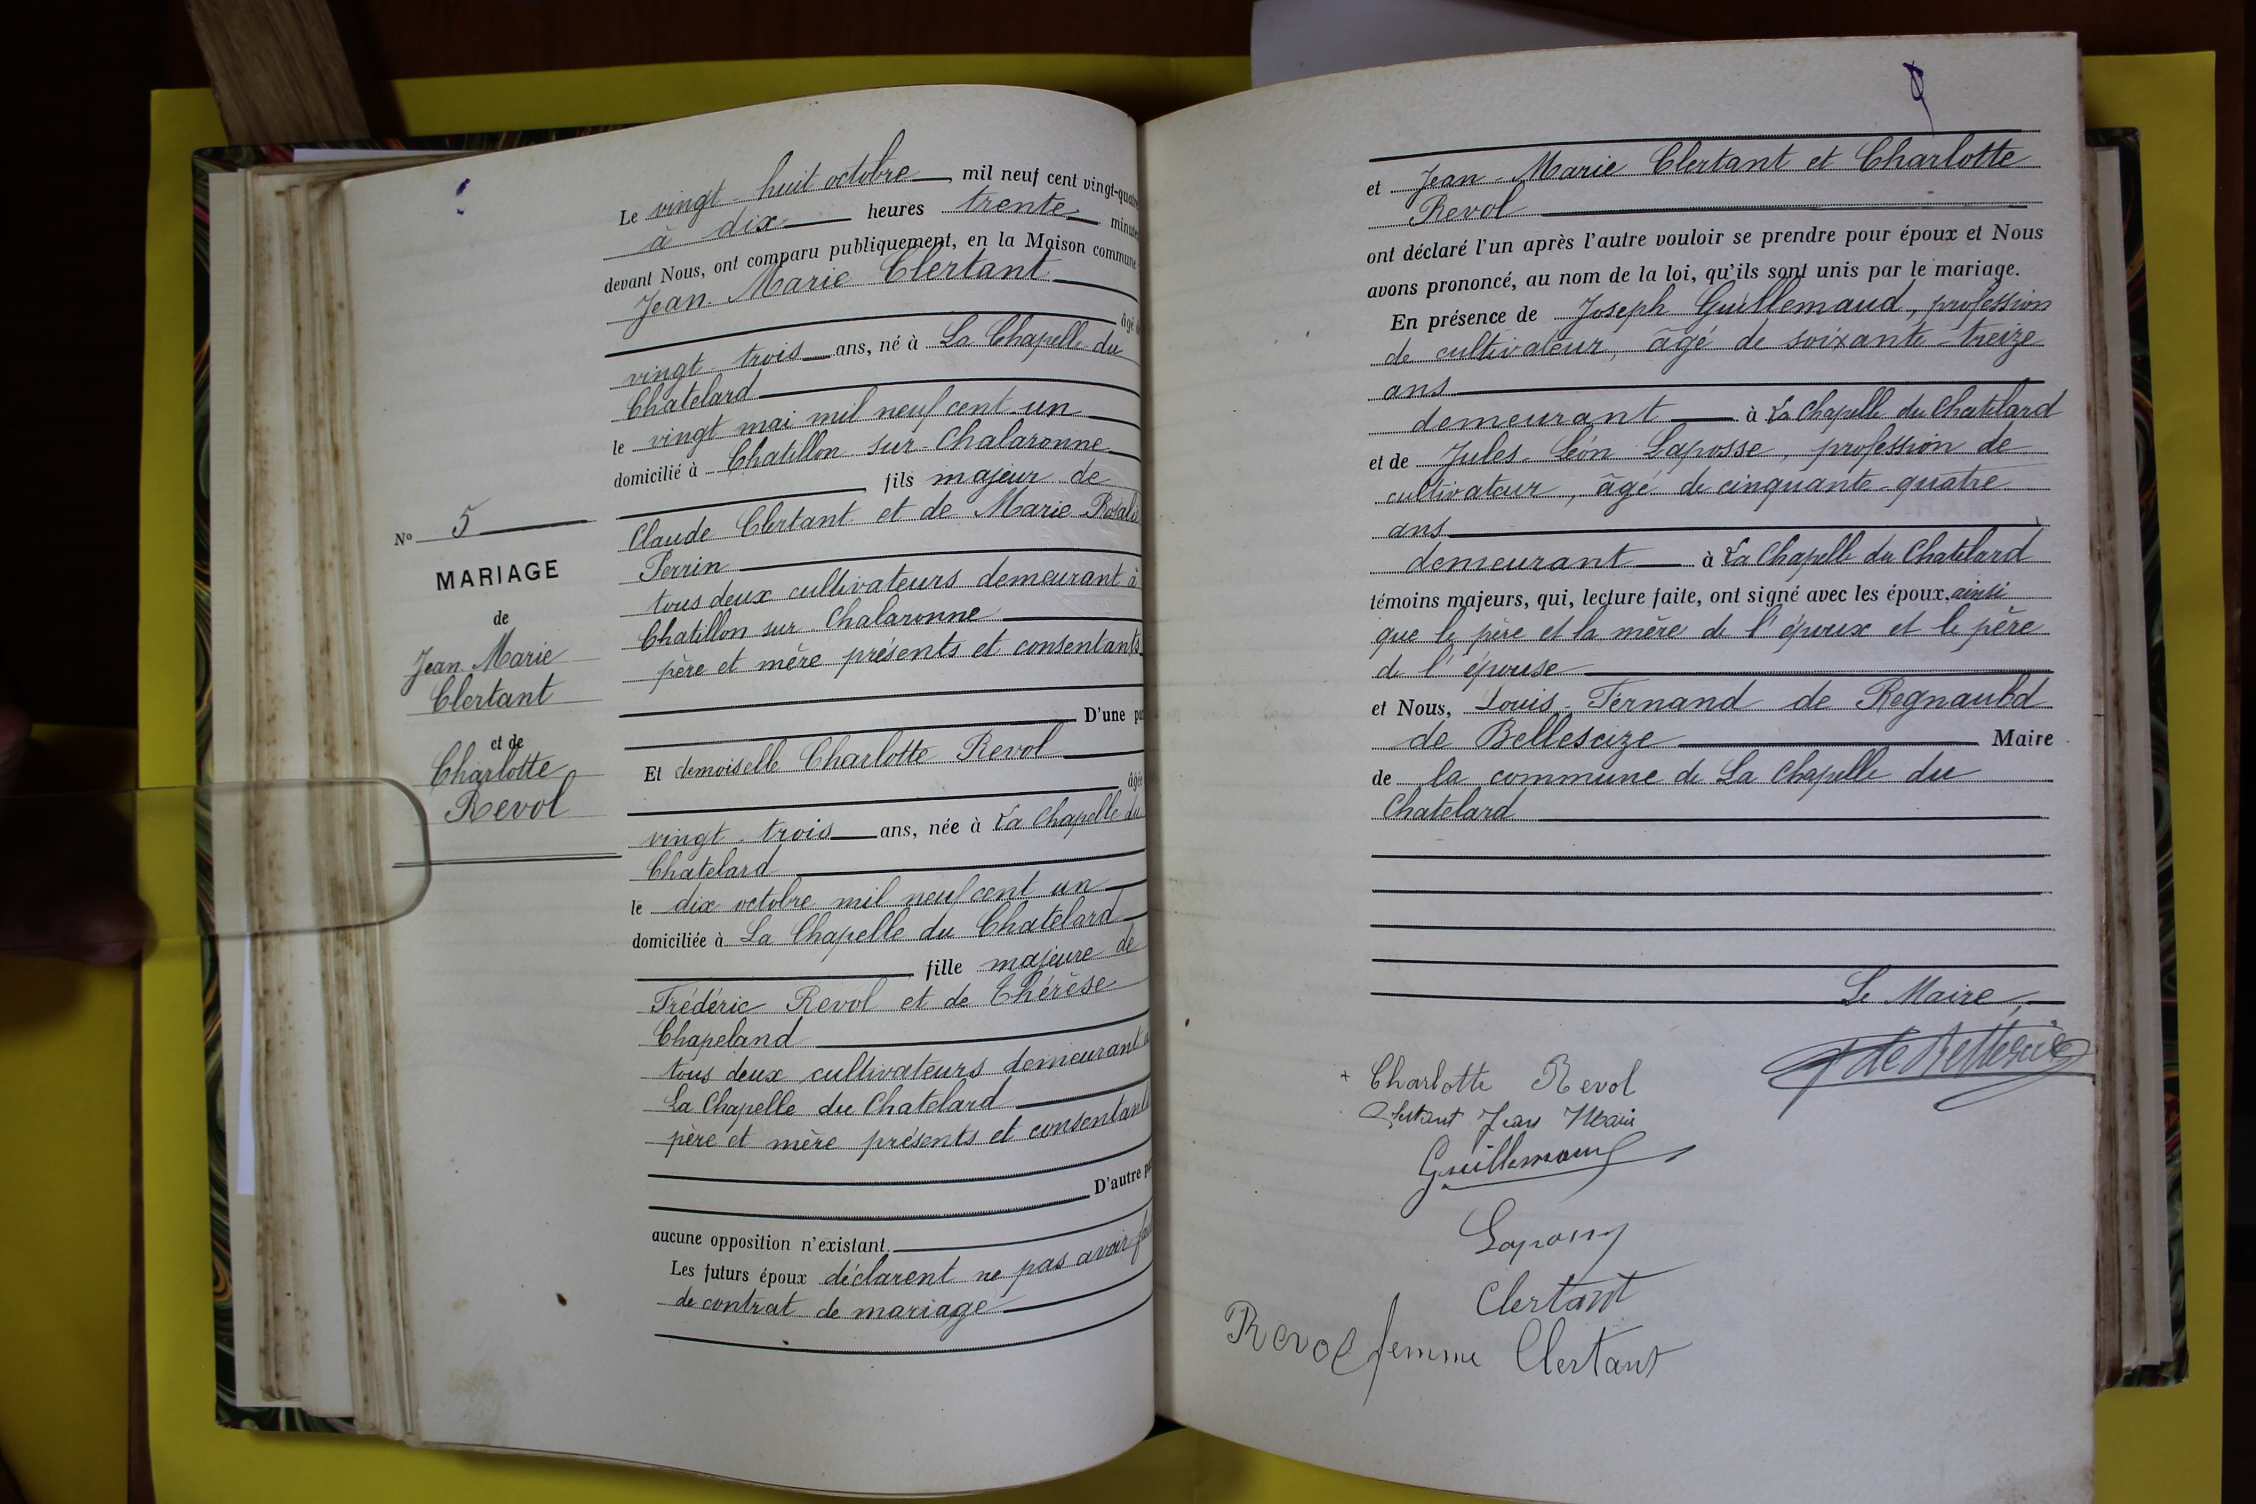 Le vingt-huit octobre, mil neuf cent vingt-quatre
à dix heures trente minutes
devant Nous, ont comparu publiquement, en la Maison commune
Jean-Marie Clertant
âgé de
vingt-trois ans, né à La Chapelle du
Chatelard
le vingt mai mil neuf cent un
domicilié à Chatillon sur-Chalaronne
fils majeur de
Claude Clertant et de Marie Rosalie
Perrin
tous deux cultivateurs demeurant à
Chatillon sur-Chalaronne
père et mère présents et consentants
D'une part
Et demoiselle Charlotte Revol
âgée
vingt-trois ans, née à La Chapelle du
Chatelard
le dix octobre mil neuf cent un
domiciliée à La Chapelle du Chatelard
fille majeure de
Frédéric Revol et de Thérèse
Chapeland
tous deux cultivateurs demeurant à
La Chapelle du Chatelard
père et mère présents et consentants
D'autre part
aucune opposition n'existant.
Les futurs époux déclarent ne pas avoir fait
de contrat de mariage
N° 5
MARIAGE
de
Jean-Marie
Clertant
et de
Charlotte
Revol
et Jean-Marie Clertant et Charlotte
Revol
ont déclaré l'un après l'autre vouloir se prendre pour époux et Nous
avons prononcé, au nom de la loi, qu'ils sont unis par le mariage.
En présence de Joseph Guillemaud, profession
de cultivateur, âgé de soixante-treize
ans
demeurant à La Chapelle du Chatelard
et de Jules-Léon Laposse, profession de
cultivateur, âgé de cinquante-quatre
ans
demeurant à La Chapelle du Chatelard
témoins majeurs, qui, lecture faite, ont signé avec les époux, ainsi
que le père et la mère de l'époux et le père
de l'épouse
et Nous, Louis-Fernand de Regnauld
de Bellescize Maire
de la commune de La Chapelle du
Chatelard
Le Maire,
de Bellescize
+ Charlotte Revol
Clertant Jean Marie
Guillemaud
Laposse
Clertant
Revol femme Clertant